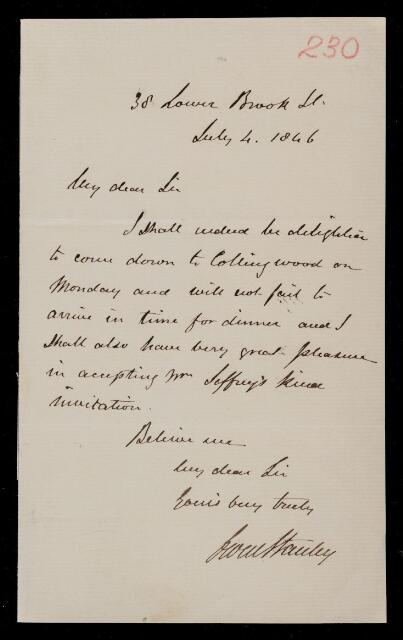 230
38 Lower Brook St.
July 4. 1846
My dear Sir
I shall indeed be delighted
to come down to Collingwood on
Monday and will not fail to
arrive in time for dinner and I
shall also have very great pleasure
in accepting Mr Jeffrey's kind
invitation.
Believe me
My dear Sir
Yours very truly
Owen Stanley